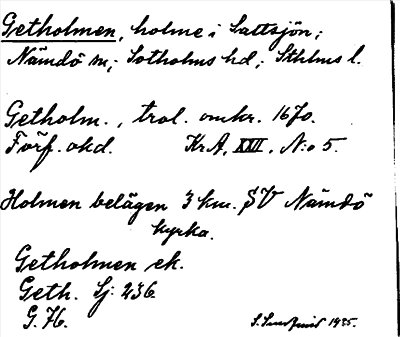 Getholmen, holme i Saltsjön;
Nämdö sn; Sotholms hd; Sthlms l.
Getholm., trol. omkr. 1670.
Förf. okd. KrA, XXII, N:o 5.
Holmen belägen 3 km. SV Nämdö
kyrka.
Getholmen ek.
Geth. Sj: 236
G. 76.
1935.